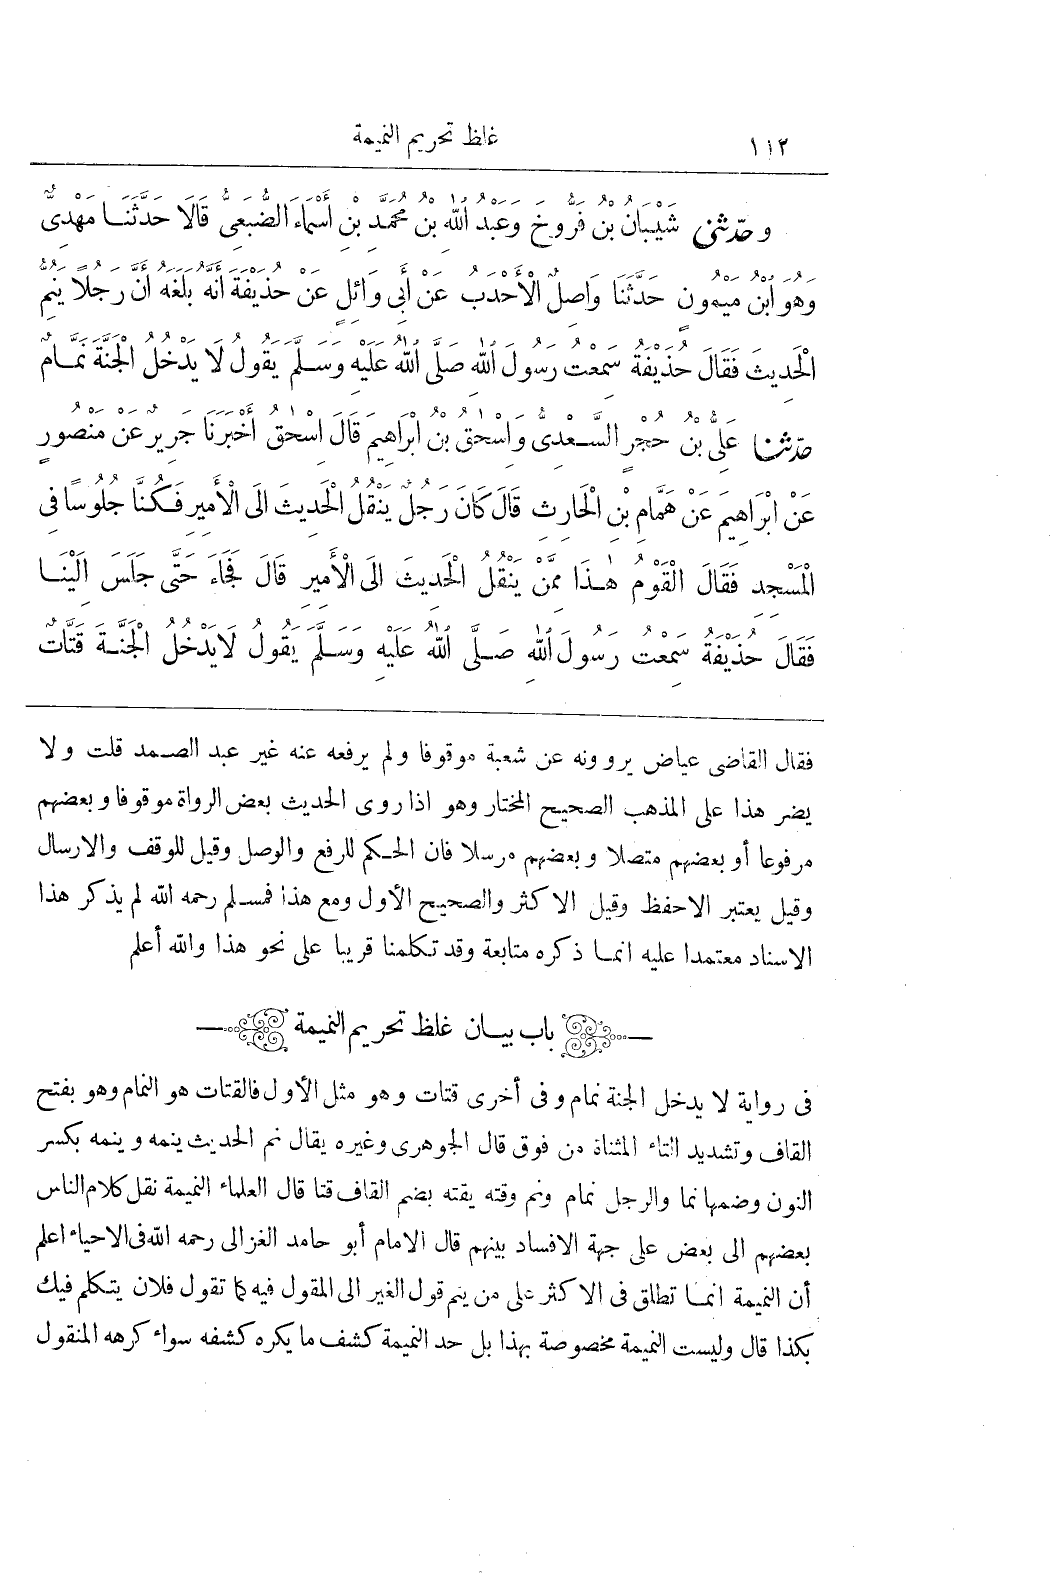 ١١٢ غلظ تحريم النميمة
وحَدَّثَنِى شَيْبَانُ بْنُ فَرُّوخَ وَعَبْدُ اللهِ بْنُ مُحَمَّدِ بْنِ أَسْمَاءَ الضُّبَعِىُّ قَالَا حَدَّثَنَا مَهْدِىٌّ
وَهُوَ ابْنُ مَيْمُونٍ حَدَّثَنَا وَاصِلٌ الْأَحْدَبُ عَنْ أَبِى وَائِلٍ عَنْ حُذَيْفَةَ أَنَّهُ بَلَغَهُ أَنَّ رَجُلًا يَنُمُّ
الْحَدِيثَ فَقَالَ حُذَيْفَةُ سَمِعْتُ رَسُولَ اللهِ صَلَّى اللهُ عَلَيْهِ وَسَلَّمَ يَقُولُ لَا يَدْخُلُ الْجَنَّةَ نَمَّامٌ
حَدَّثَنَا عَلِىُّ بْنُ حُجْرٍ السَّعْدِىُّ وَإِسْحٰقُ بْنُ إِبْرَاهِيمَ قَالَ إِسْحٰقُ أَخْبَرَنَا جَرِيرٌ عَنْ مَنْصُورٍ
عَنْ إِبْرَاهِيمَ عَنْ هَمَّامِ بْنِ الْحَارِثِ قَالَ كَانَ رَجُلٌ يَنْقُلُ الْحَدِيثَ إِلَى الْأَمِيرِ فَكُنَّا جُلُوسًا فِى
الْمَسْجِدِ فَقَالَ الْقَوْمُ هٰذَا مِمَّنْ يَنْقُلُ الْحَدِيثَ إِلَى الْأَمِيرِ قَالَ فَجَاءَ حَتَّى جَلَسَ إِلَيْنَا
فَقَالَ حُذَيْفَةُ سَمِعْتُ رَسُولَ اللهِ صَلَّى اللهُ عَلَيْهِ وَسَلَّمَ يَقُولُ لَا يَدْخُلُ الْجَنَّةَ قَتَّاتٌ
فقال القاضى عياض يروونه عن شعبة موقوفا ولم يرفعه عنه غير عبد الصمد قلت ولا
يضر هذا على المذهب الصحيح المختار وهو اذا روى الحديث بعض الرواة موقوفا وبعضهم
مرفوعا أو بعضهم متصلا وبعضهم مرسلا فان الحكم للرفع والوصل وقيل للوقف والارسال
وقيل يعتبر الاحفظ وقيل الاكثر والصحيح الأول ومع هذا فمسلم رحمه الله لم يذكر هذا
الاسناد معتمدا عليه انما ذكره متابعة وقد تكلمنا قريبا على نحو هذا والله أعلم
باب بيان غلظ تحريم النميمة
فى رواية لا يدخل الجنة نمام وفى أخرى قتات وهو مثل الأول فالقتات هو النمام وهو بفتح
القاف وتشديد التاء المثناة من فوق قال الجوهرى وغيره يقال نم الحديث ينمه وينمه بكسر
النون وضمها نما والرجل نمام ونم وقته يقته بضم القاف قتا قال العلماء النميمة نقل كلام الناس
بعضهم الى بعض على جهة الافساد بينهم قال الامام أبو حامد الغزالى رحمه الله فى الاحياء اعلم
أن النميمة انما تطلق فى الاكثر على من ينم قول الغير الى المقول فيه كما تقول فلان يتكلم فيك
بكذا قال وليست النميمة مخصوصة بهذا بل حد النميمة كشف ما يكره كشفه سواء كرهه المنقول